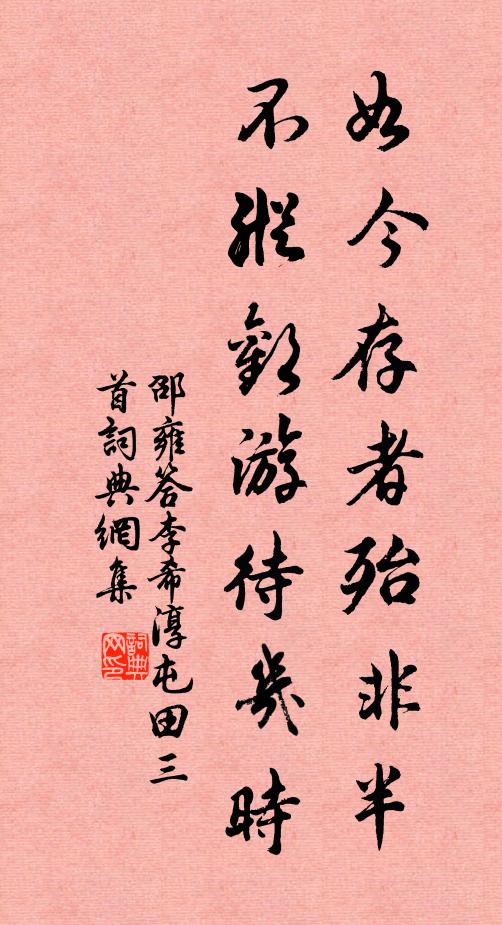 如今存者殆非半
不縱歡游待幾時
邵雍答李希淳屯田三
首詞典網集
詞典
网印